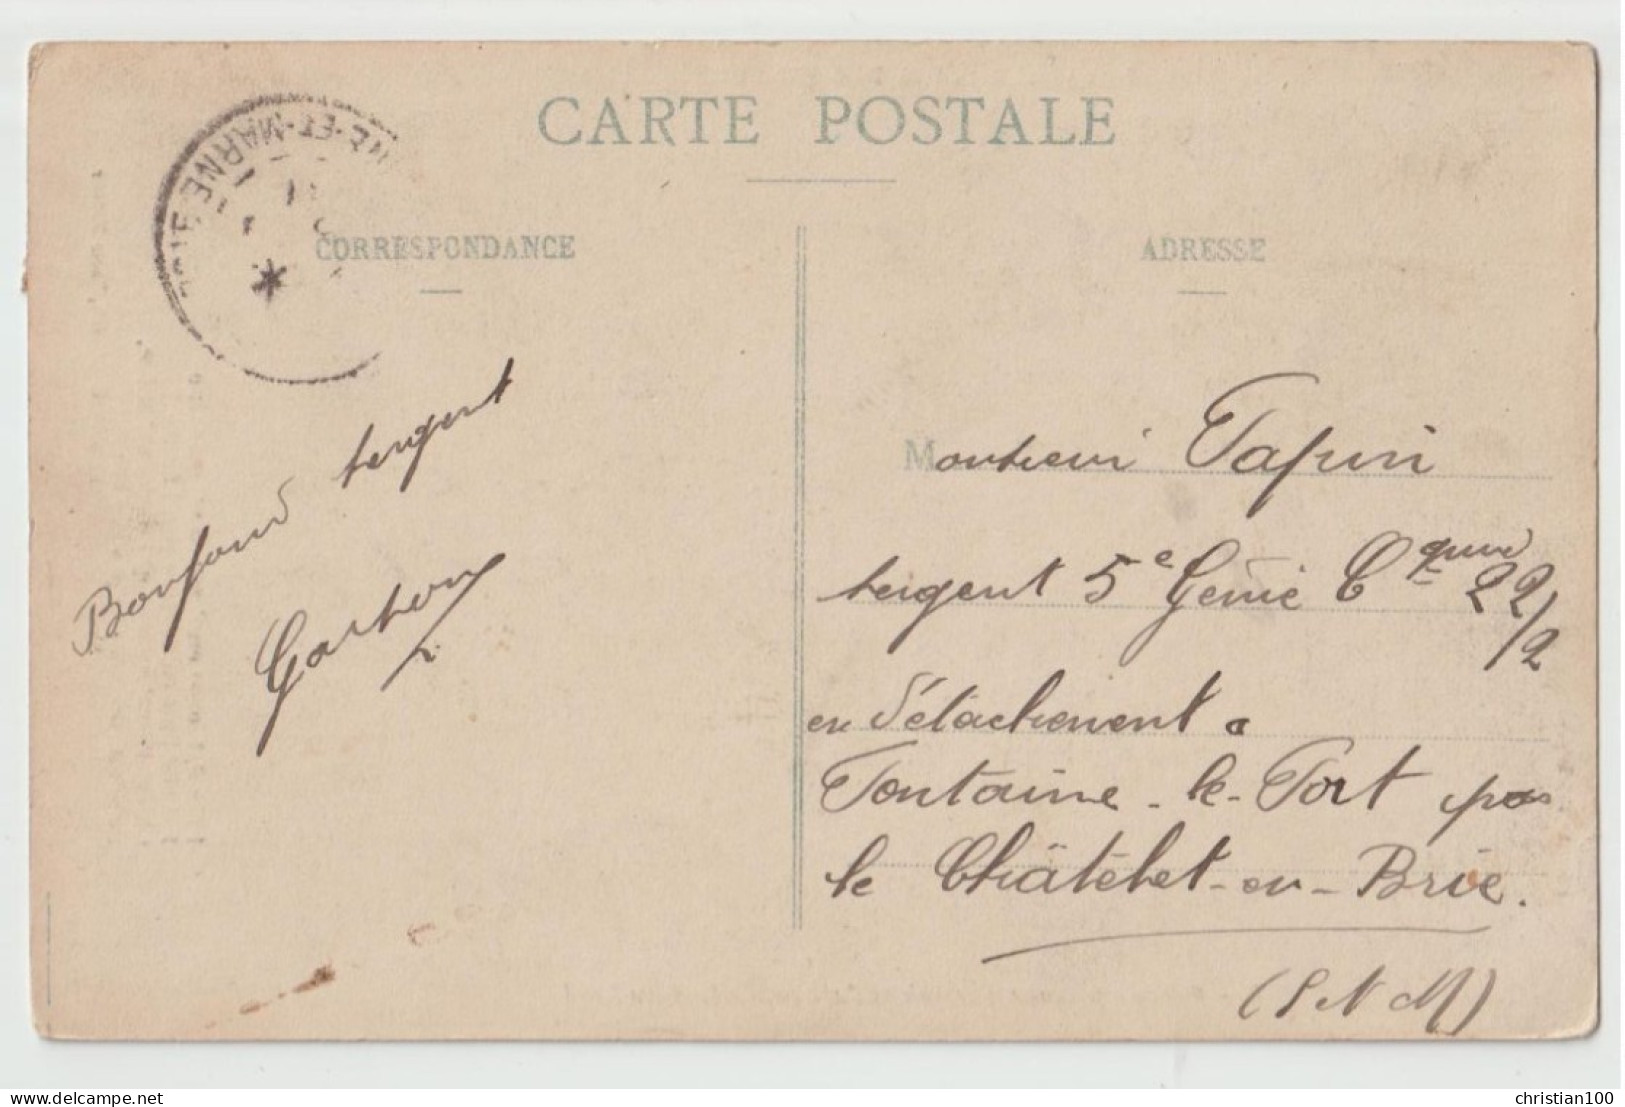 CARTE POSTALE
CORRESPONDANCE
ADRESSE
ET-MARNE
Bonfand sergent
Monsieur Tapin
sergent 5e Génie Cie 22/2
en Détachement a
Fontaine-le-Port par
le Châtelet-en-Brie.
(S N M)
delcampe.net
christian100